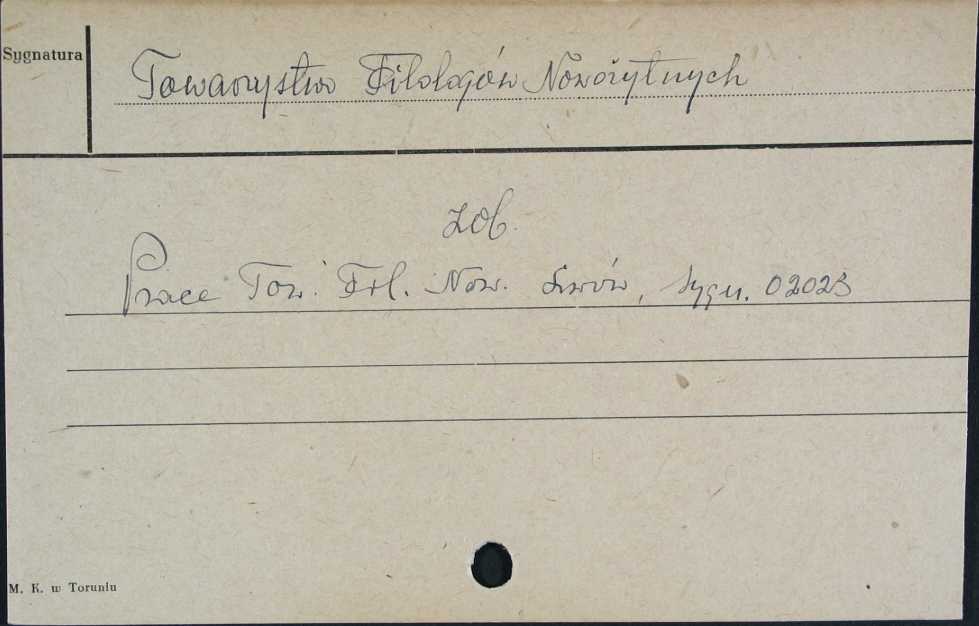 Sygnatura
Towarzystwo Filologów Nowożytnych
zob.
Prace Tow. Fil. Now. Lwów, sygn. 02023
M. K. w Toruniu